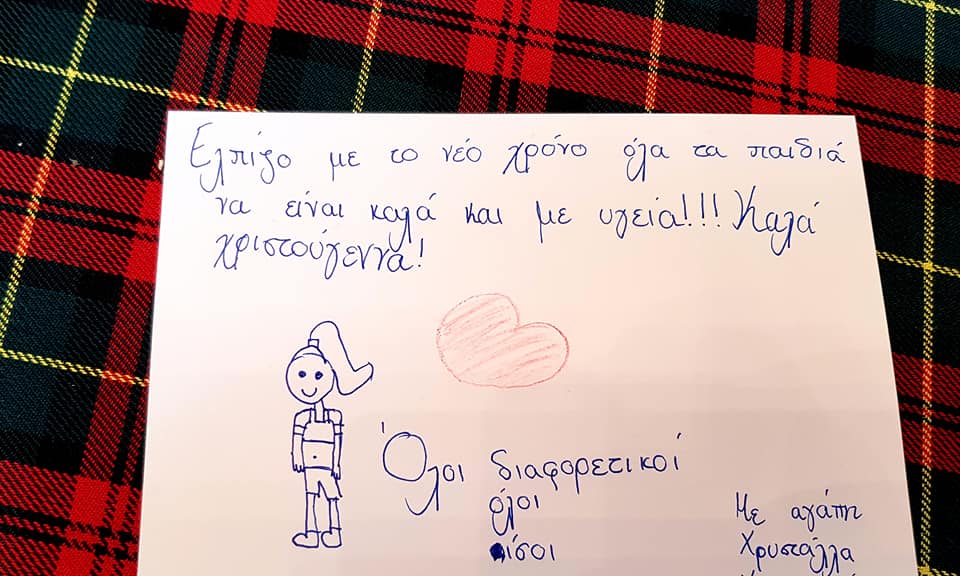 Ελπίζο με το νέο χρόνο όλα τα παιδιά
να είναι καλά και με υγεία!!! Καλά
χριστούγεννα!
Όλοι διαφορετικοί
όλοι
ίσοι
Με αγάπη
Χρυστάλλα